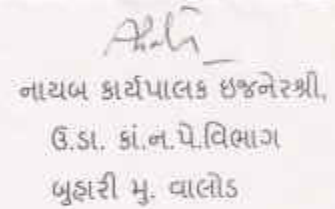 નાયબ કાર્યપાલક ઇજનેરશ્રી,
ઉ.ડા. કાં.ન.પે.વિભાગ
બુહારી મુ. વાલોડ